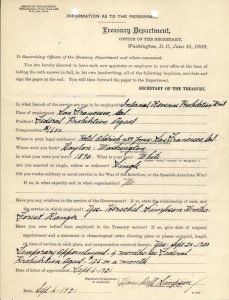 INFORMATION AS TO THE PERSONNEL
Treasury Department,
OFFICE OF THE SECRETARY,
Washington, D. C., June 15, 1909.
To Supervising Officers of the Treasury Department and others concerned:
You are hereby directed to have each new appointee or employee in your office at the time of
taking the oath answer in full, in his own handwriting, all of the following inquiries, and date and
sign the paper at the end. You will then forward the paper to this office.
SECRETARY OF THE TREASURY.
In what branch of the service are you to be employed? Internal Revenue Prohibition Unit
Place of employment San Francisco, Cal
Federal Prohibition Agent
Compensation
Where is your legal residence? San Francisco, Cal
Where were you born? Dayton - Washington
In what year were you born? 1890 White
Are you married or single, widow or widower? Single
Did you render military or naval service in the War of the Rebellion, or the Spanish-American War?
If so, in what capacity and in what organization? No
Have you any relatives in the service of the Government? If so, state the relationship of each, and
the service in which employed? Yes. Herschel Simpson Brother
Forest Ranger
Have you previously been in the service of the Government? If so, give date of original
appointment and a statement in chronological order showing place or places occupied, length
of service in each place, and compensation received therein. Yes, Sept. 20-1920
Temporary Appointment 6 months as Federal
Prohibition Agent a month
Date of letter of appointment Sept 6-1921
Simpson
Date, Sept. 6-1921